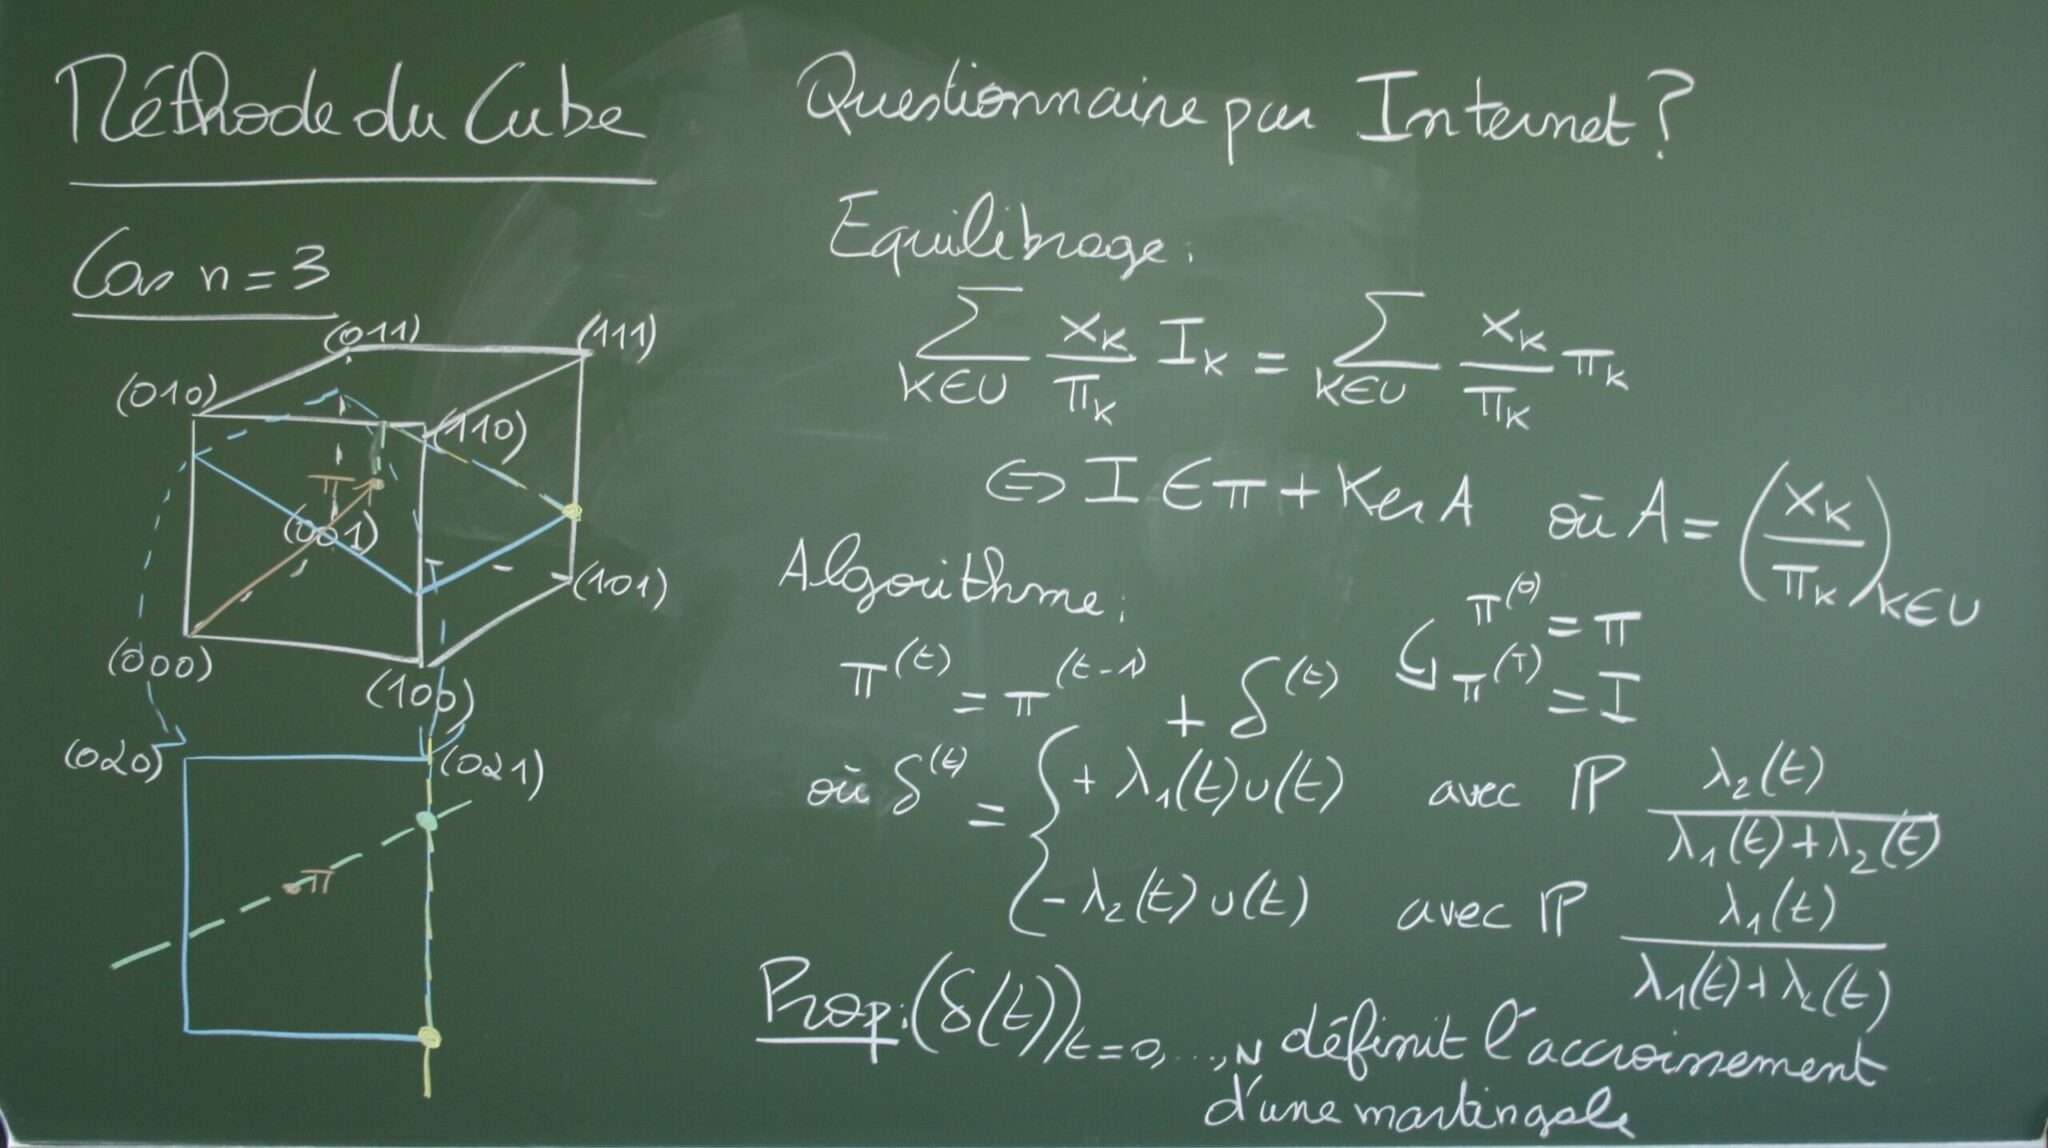 Méthode du Cube
Cas n = 3
(011)
(111)
(010)
(110)
π
(001)
(101)
(000)
(100)
(020)
(021)
π
Questionnaire par Internet ?
Equilibrage :
∑_{k∈U} x_k/π_k I_k = ∑_{k∈U} x_k/π_k π_k
⇔ I ∈ π + Ker A où A = (x_k/π_k)_{k∈U}
Algorithme :
π^(0) = π
π^(t) = π^(t-1) + δ^(t)
π^(T) = I
où δ^(t) = { + λ₁(t)u(t) avec ℙ λ₂(t)/(λ₁(t)+λ₂(t))
- λ₂(t)u(t) avec ℙ λ₁(t)/(λ₁(t)+λ₂(t))
Prop : (δ(t))_{t=0,...,N} définit l'accroissement
d'une martingale